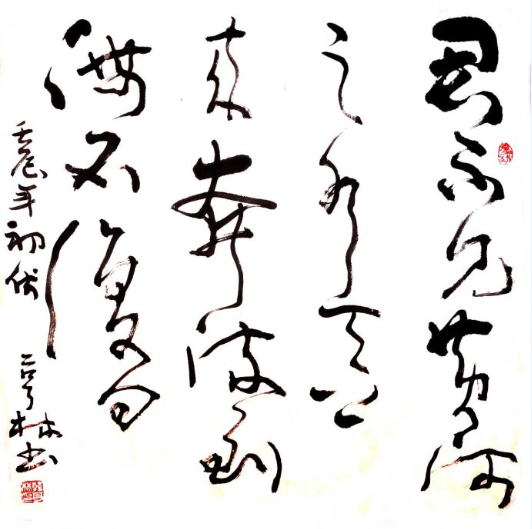 君不见黄河
之水天上
来奔流到
海不復回
壬辰年初伏 亨林书